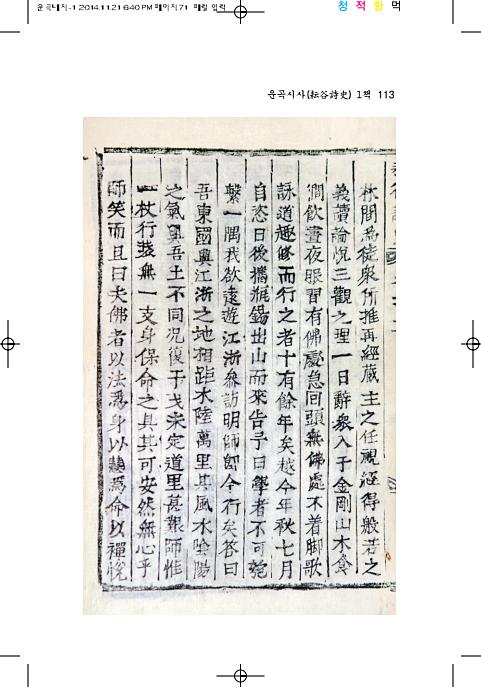 운곡내지-1 2014.11.21 6:40 PM 페이지71 매킬 입력
청 적 황 먹
운곡시사(耘谷詩史) 1책 113
林聞爲徒衆所推再經蔵主之任視經得般若之
義讀論悅三觀之理一日辭衆入于金剛山木食
澗飮晝夜服習有佛處急回頭無佛處不着脚歌
詠道趣修而行之者十有餘年矣越今年秋七月
自恣日後携甁錫出山而來告予曰學者不可匏
繫一隅我欲遠遊江浙叅訪明師卽今行矣答曰
吾東國與江浙之地相距水陸萬里其風水陰陽
之氣與吾土不同况復干戈未定道里甚艱師惟
一杖行裝無一支身保命之具其可安然無心乎
師笑而且曰夫佛者以法爲身以慧爲命以禪悅